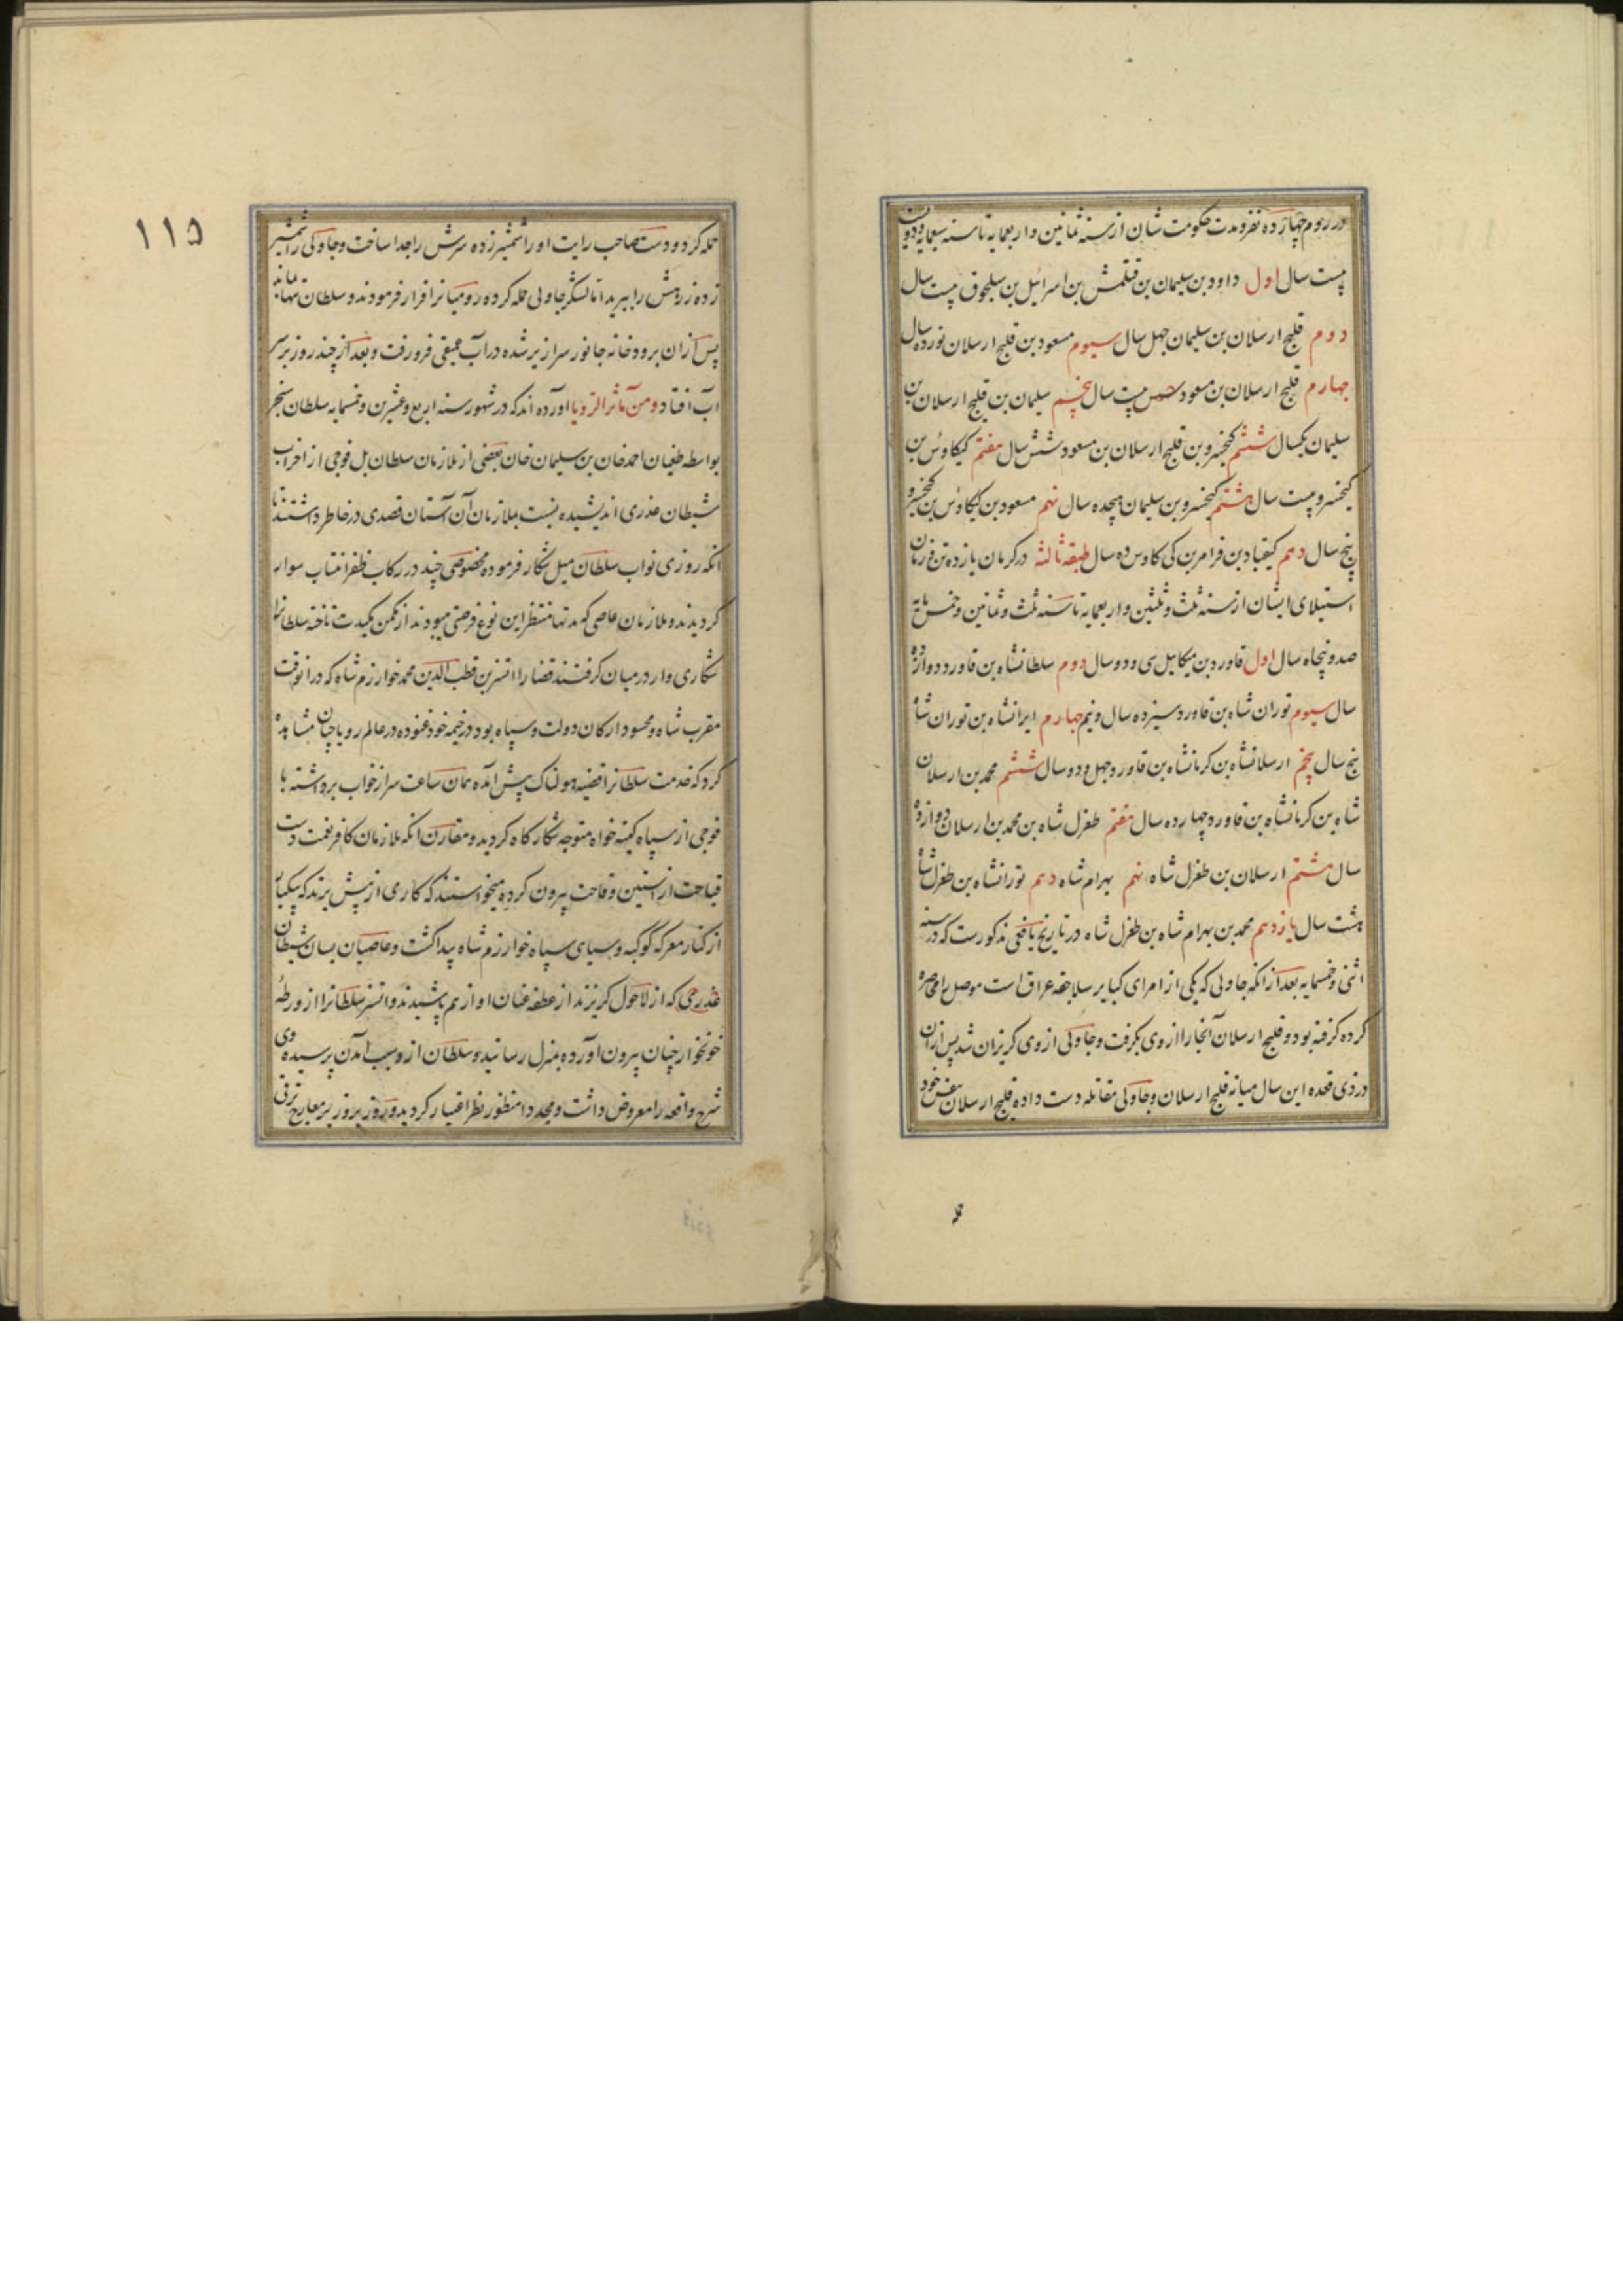 در روم چهارده نفر و مدت حکومت شان از سنه ثمانین و اربعمایه تا سنه سبعمایه دویست
بیست سال اول داود بن سلیمان بن قتلمش بن اسرائیل بن سلجوق بیست سال
دوم قلیج ارسلان بن سلیمان چهل سال سیوم مسعود بن قلیج ارسلان نوزده سال
چهارم قلیج ارسلان بن مسعود بیست سال پنجم سلیمان بن قلیج ارسلان بن
سلیمان یکسال ششم کیخسرو بن قلیج ارسلان بن مسعود شش سال هفتم کیکاوس بن
کیخسرو بیست سال هشتم کیخسرو بن سلیمان هیجده سال نهم مسعود بن کیکاوس بن کیخسرو
پنج سال دهم کیقباد بن فرامرز بن کی کاوس ده سال طبقه ثالثه در کرمان یازده تن زمان
استیلای ایشان از سنه ثلث و ثلثین و اربعمایه تا سنه ثلث و ثمانین و خمس مایه
صد و پنجاه سال اول قاورد بن میکاییل سی و دو سال دوم سلطانشاه بن قاورد دوازده
سال سیوم توران شاه بن قاورد سیزده سال و نیم چهارم ایرانشاه بن توران شاه
پنج سال پنجم ارسلانشاه بن کرمانشاه بن قاورد چهل و دو سال ششم محمد بن ارسلان
شاه بن کرمانشاه بن قاورد چهارده سال هفتم طغرل شاه بن محمد بن ارسلان دوازده
سال هشتم ارسلان بن طغرل شاه نهم بهرام شاه دهم تورانشاه بن طغرل شاه
هشت سال یازدهم محمد بن بهرام شاه بن طغرل شاه در تاریخ یافعی مذکورست که در سنه
اثنی و خمسمایه بعد از انکه جاولی که یکی از امرای کبایر سلاجقه عراق است موصل را محاصره
کرده گرفته بود و قلیج ارسلان آنجا را از وی بگرفت و جاولی از وی گریزان شد پس از آن
در ذی قعده این سال میانه قلیج ارسلان و جاولی مقاتله دست داده قلیج ارسلان بنفس خود
حمله
۱۱۵
حمله کرد و دست صاحب رایت او را شمشیر زده سرش را جدا ساخت و جاولی را شمشیر
زده زرهش را ببرید اما لشکر جاولی حمله کرده رومیانرا فرار فرمودند و سلطان تنها مانده
پس از ان برودخانه جانور سرازیر شده در آب عمیقی فرو رفت و بعد از چند روز بر سر
آب افتاد و من مآثر الرویا آورده اند که در شهور سنه اربع و عشرین و خمسمایه سلطان سنجر
بواسطه طغیان احمد خان بن سلیمان خان بعضی از ملازمان سلطان بل فوجی از احزاب
شیطان غدری اندیشیده نسبت بملازمان آن آستان قصدی در خاطر داشتند تا
آنکه روزی نواب سلطان میل شکار فرموده مخصوصی چند در رکاب ظفر انتساب سوار
گردیدند و ملازمان عاصی که مدتها منتظر این نوع فرصتی میبودند از مکمن مکیدت تاخته سلطانرا
شکاری وار در میان گرفتند قضا را اتسز بن قطب الدین محمد خوارزم شاه که در انوقت
مقرب شاه و محسود ارکان دولت و سپاه بود در خیمه خود غنوده در عالم رویا چنان مشاهده
کرد که خدمت سلطانرا قضیه هولناک پیش آمده همان ساعت سر از خواب برداشته با
فوجی از سپاه کینه خواه متوجه شکار گاه گردید و مقارن انکه ملازمان کافر نعمت دست
قباحت از آستین وقاحت بیرون کرده میخواستند که کاری از پیش برند که بیکبار
از کنار معرکه کوکبه و سیاهی سپاه خوارزم شاه پیدا گشت و عاصیان بسان شیطان
غدرجی که از لاحول گریزند از عطفه عنان او از هم پاشیدند و اتسز سلطانرا از ورطه
خونخوار چنان بیرون آورده بمنزل رسانید و سلطان از و سبب آمدن پرسیده وی
شرح واقعه را معروض داشت و مجددا منظور نظر اعتبار گردید و روز بروز بر معارج ترقی